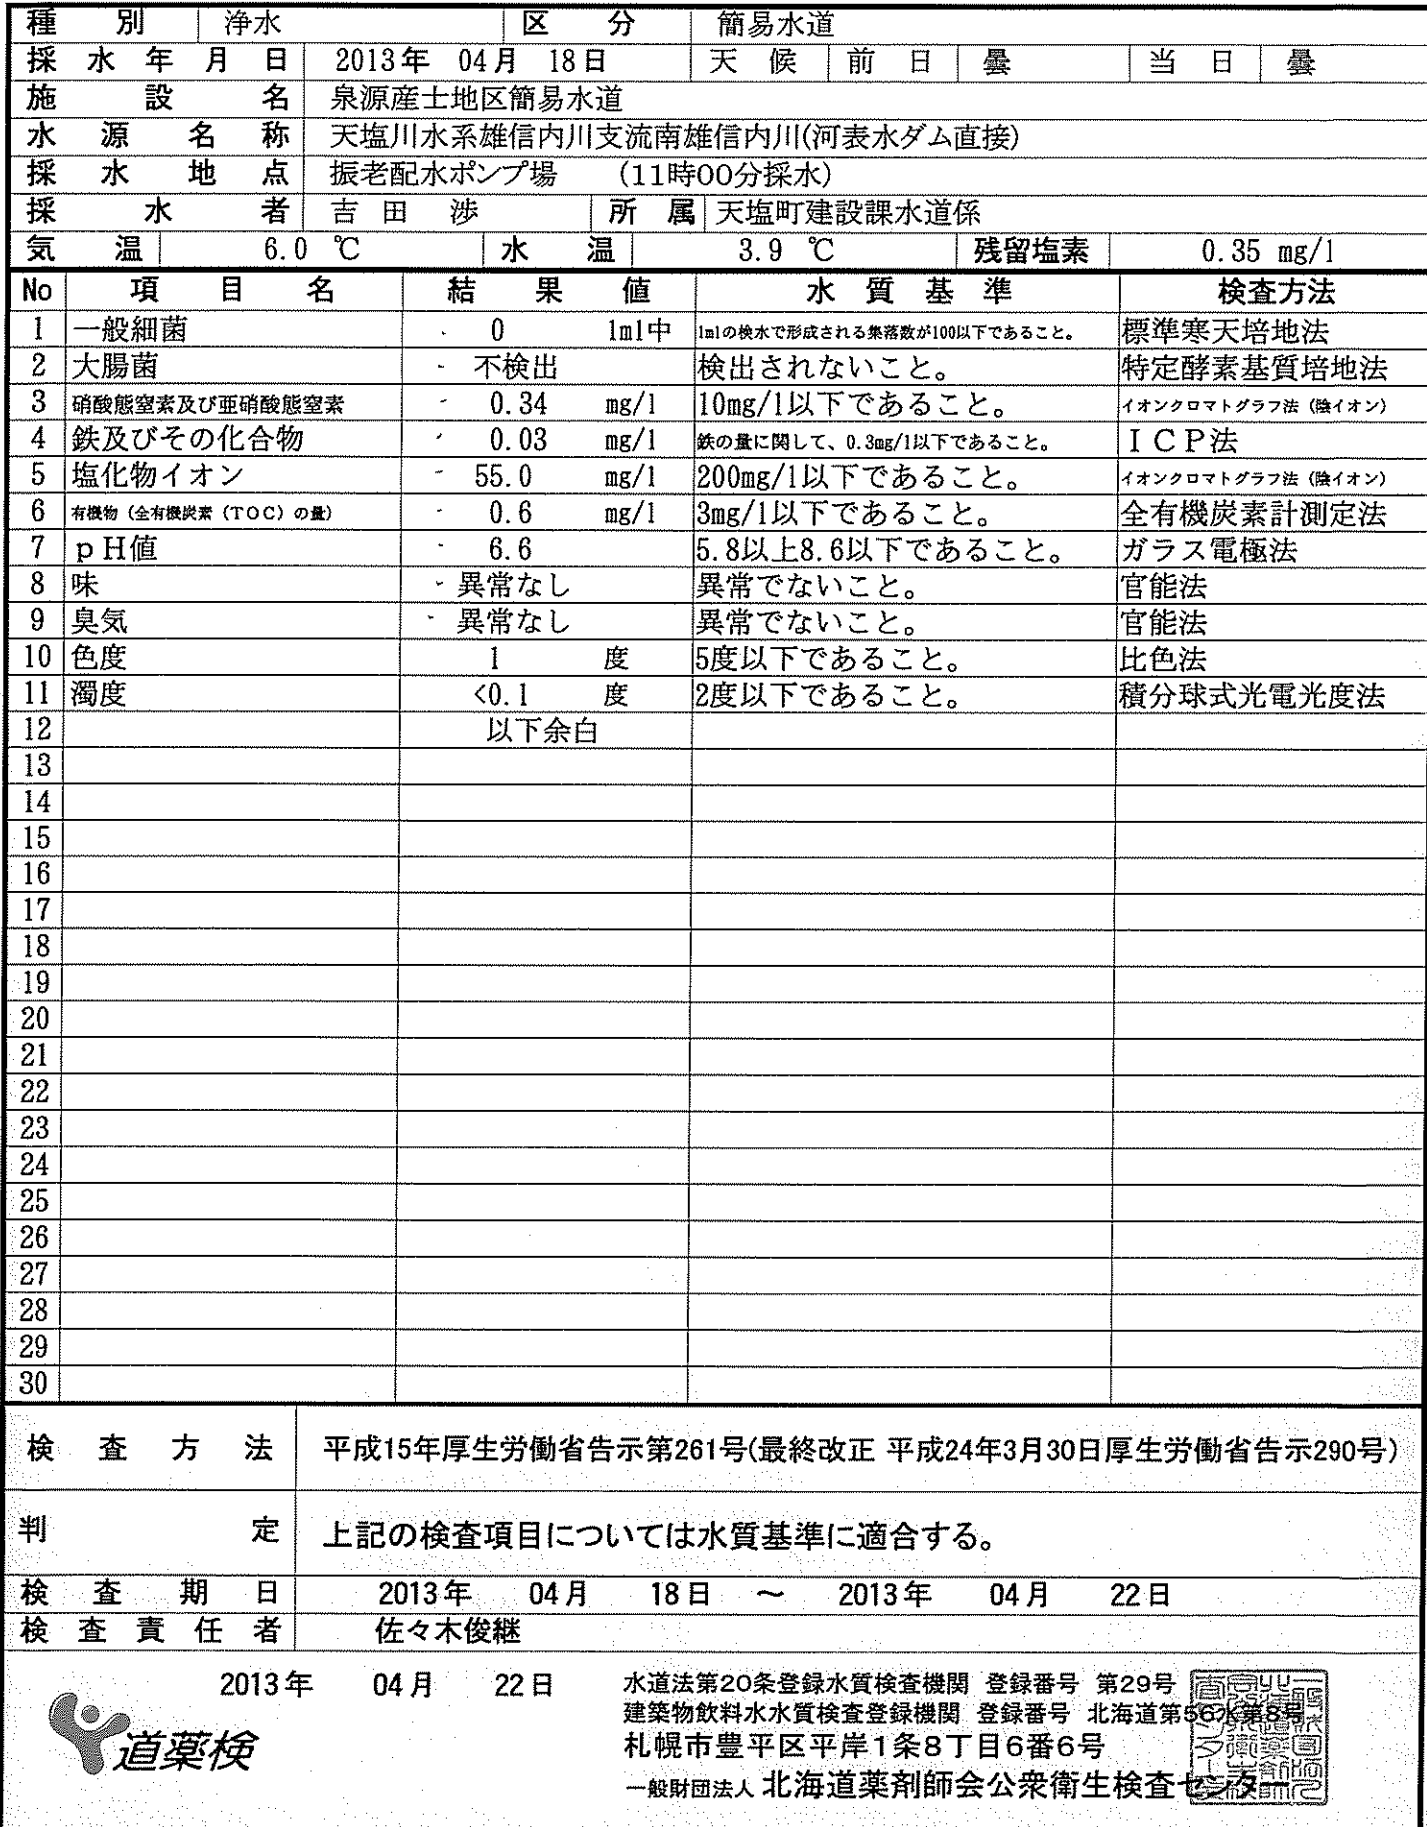 種別 浄水 区分 簡易水道
採水年月日 2013年 04月 18日 天候 前日 曇 当日 曇
施設名 泉源産士地区簡易水道
水源名称 天塩川水系雄信内川支流南雄信内川(河表水ダム直接)
採水地点 振老配水ポンプ場 (11時00分採水)
採水者 吉田 渉 所属 天塩町建設課水道係
気温 6.0 ℃ 水温 3.9 ℃ 残留塩素 0.35 mg/l
No 項目名 結果値 水質基準 検査方法
1 一般細菌 0 1ml中 1mlの検水で形成される集落数が100以下であること。 標準寒天培地法
2 大腸菌 不検出 検出されないこと。 特定酵素基質培地法
3 硝酸態窒素及び亜硝酸態窒素 0.34 mg/l 10mg/l以下であること。 イオンクロマトグラフ法(陰イオン)
4 鉄及びその化合物 0.03 mg/l 鉄の量に関して、0.3mg/l以下であること。 ICP法
5 塩化物イオン 55.0 mg/l 200mg/l以下であること。 イオンクロマトグラフ法(陰イオン)
6 有機物(全有機炭素(TOC)の量) 0.6 mg/l 3mg/l以下であること。 全有機炭素計測定法
7 pH値 6.6 5.8以上8.6以下であること。 ガラス電極法
8 味 異常なし 異常でないこと。 官能法
9 臭気 異常なし 異常でないこと。 官能法
10 色度 1 度 5度以下であること。 比色法
11 濁度 <0.1 度 2度以下であること。 積分球式光電光度法
12 以下余白
13
14
15
16
17
18
19
20
21
22
23
24
25
26
27
28
29
30
検査方法 平成15年厚生労働省告示第261号(最終改正 平成24年3月30日厚生労働省告示290号)
判定 上記の検査項目については水質基準に適合する。
検査期日 2013年 04月 18日 ～ 2013年 04月 22日
検査責任者 佐々木俊継
2013年 04月 22日
水道法第20条登録水質検査機関 登録番号 第29号
建築物飲料水水質検査登録機関 登録番号 北海道第56水第8号
札幌市豊平区平岸1条8丁目6番6号
一般財団法人 北海道薬剤師会公衆衛生検査センター
道薬検